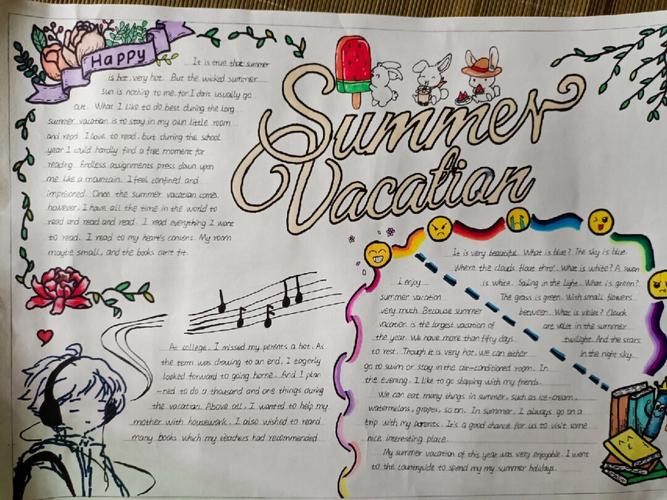 Happy
Summer
Vacation
It is true that summer
is hot, very hot. But the wicked summer
sun is nothing to me, for I don't usually go
out. What I like to do best during the long
summer vacation is to stay in my own little room
and read. I love to read, but during the school
year I would hardly find a free moment for
reading. Endless assignments press down upon
me like a mountain. I feel confined and
imprisoned. Once the summer vacation comes,
however, I have all the time in the world to
read and read and read. I read everything I want
to read. I read to my heart's content. My room
maybe small, and the books can't fit.
At college, I missed my parents a hot. As
the term was drawing to an end, I eagerly
looked forward to going home. And I plan
-ned to do a thousand and one things during
the vacation. Above all, I wanted to help my
mother with housework. I also wished to read
many books which my teachers had recommended.
It is very beautiful. What is blue? The sky is blue.
Where the clouds float thro'. What is white? A swan
is white. Sailing in the light. What is green?
The grass is green. With small flowers
between. What is violet? Clouds
are violet in the summer
twilight. And the stars
in the night sky.
I enjoy
summer vacation
very much. Because summer
vacation is the largest vacation of
the year. We have more than fifty days
to rest. Though it is very hot, we can either
go to swim or stay in the air-conditioned room. In
the evening, I like to go shopping with my friends.
We can eat many things in summer, such as ice-cream,
watermelons, grapes, so on. In summer, I always go on a
trip with my parents. It's a good chance for us to visit some
nice interesting place.
My summer vacation of this year was very enjoyable. I went
to the countryside to spend my my summer holidays.